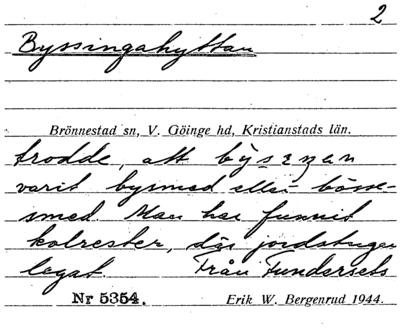 2
Byssingahyttan
Brönnestad sn, V. Göinge hd, Kristianstads län.
trodde, att
varit bysmed eller bösse-
smed. Man har funnit
kolrester, där jordstugan
legat. Från Fundersets
Nr 5354. Erik W. Bergenrud 1944.